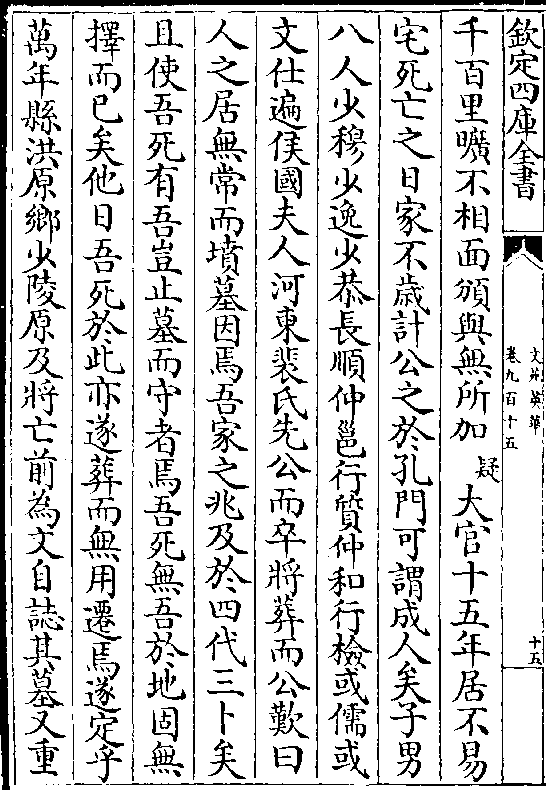 欽定四庫全書
文苑英華
卷九百十五
十五
千百里曠不相面頒與無所加疑大官十五年居不易
宅死亡之日家不歲計公之於孔門可謂成人矣子男
八人少穆少逸少恭長順仲邕行質仲和行檢或儒或
文仕遍侯國夫人河東裴氏先公而卒將葬而公歎曰
人之居無常而墳墓因焉吾家之兆及於四代三卜矣
且使吾死有吾豈止墓而守者焉吾死無吾於地固無
擇而已矣他日吾死於此亦遂葬而無用遷焉遂定乎
萬年縣洪原鄉少陵原及將亡前為文自誌其墓又重